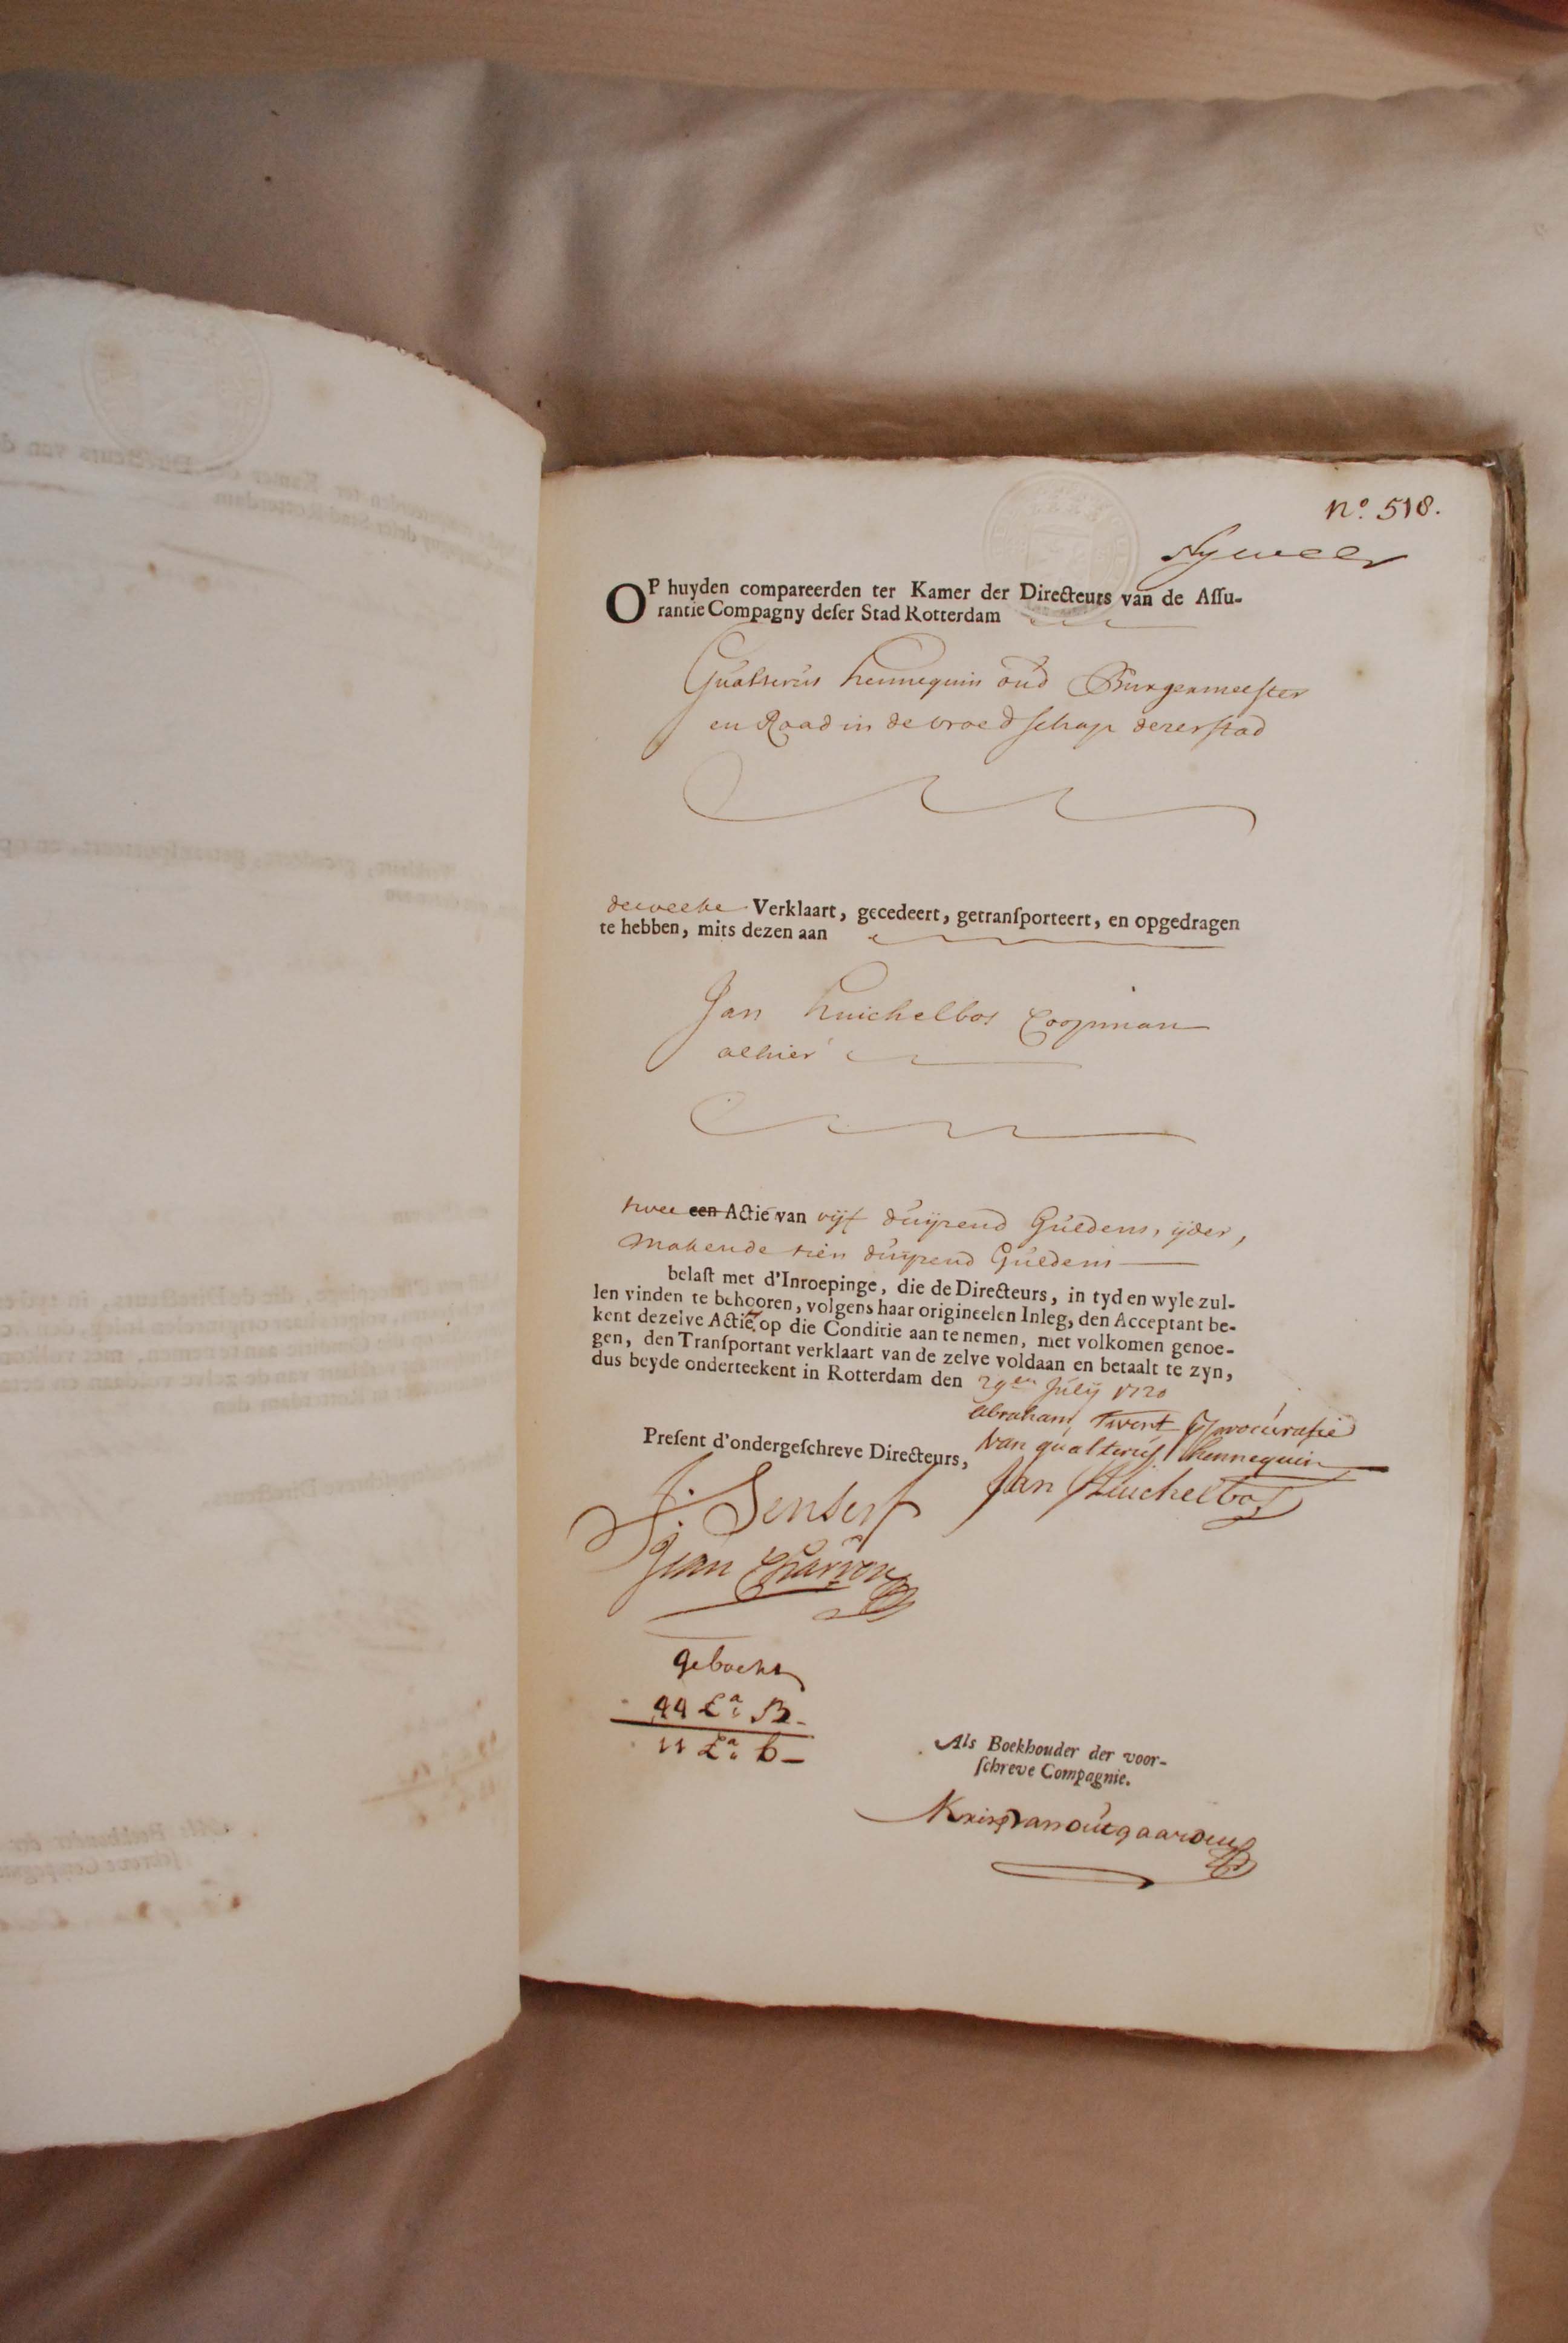 nº. 518.
OP huyden compareerden ter Kamer der Directeurs van de Aſſu-
rantie Compagny deſer Stad Rotterdam
Gualterús hennequin oúd Burgermeester
en Raad in de vroedschap dezer stad
dewelke Verklaart, gecedeert, getranſporteert, en opgedragen
te hebben, mits dezen aan
Jan huichelbos Coopman
alhier
twee een Actie van vijf dúijzend Gúldens, ijder,
makende tien dúijzend Gúldens
belaſt met d'Inroepinge, die de Directeurs, in tyd en wyle zul-
len vinden te behooren, volgens haar origineelen Inleg, den Acceptant be-
kent dezelve Actie op die Conditie aan te nemen, met volkomen genoe-
gen, den Tranſportant verklaart van de zelve voldaan en betaalt te zyn,
dus beyde onderteekent in Rotterdam den 29en Júlij 1720
Abraham Twent procúratie
van qualterús hennequin
Preſent d'ondergeſchreve Directeurs,
Jan Huichelbos
J. Senserf
Jean Charron
geboekt
44 La B
11 La b
Als Boekhouder der voor-
ſchreve Compagnie.
Krisp van oútgaarden